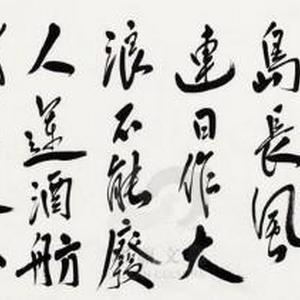 島長風
連日作大
浪不能廢
人運酒舫